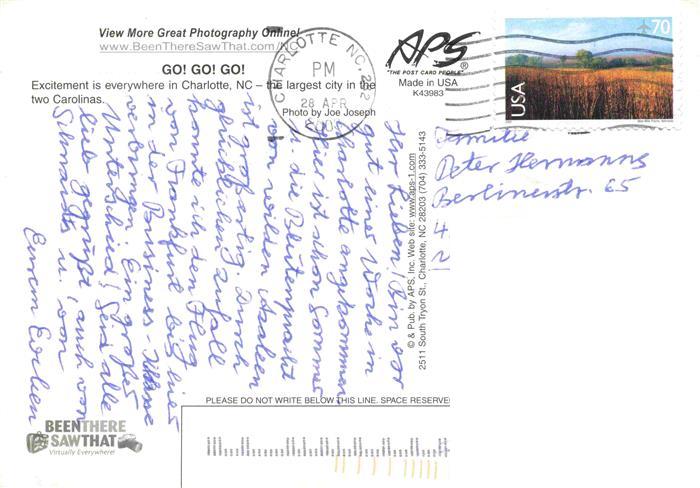 View More Great Photography Online!
www.BeenThereSawThat.com/NC
GO! GO! GO!
Excitement is everywhere in Charlotte, NC – the largest city in the
two Carolinas.
Photo by Joe Joseph
CHARLOTTE NC 282
PM
28 APR
APS
®
"THE POST CARD PEOPLE"
Made in USA
K43983
70
USA
Familie
Peter Hermanns
Berlinerstr. 65
4
2
Ihr Lieben! Bin vor
gut einer Woche in
Charlotte angekommen
Hier ist schon Sommer
u. die Blütenpracht
von wilden Azaleen
ist großartig. Durch
glücklichen Zufall
konnte ich den Flug
von Frankfurt bis hier
in der Bussiness-Klasse
verbringen: Ein großer
Unterschied! Seid alle
lieb gegrüßt, auch von
u. von
Eurem
© & Pub. by APS, Inc. Web site: www.aps-1.com
2511 South Tryon St., Charlotte, NC 28203 (704) 333-5143
PLEASE DO NOT WRITE BELOW THIS LINE. SPACE RESERVE
BEENTHERE
SAWTHAT
Virtually Everywhere!